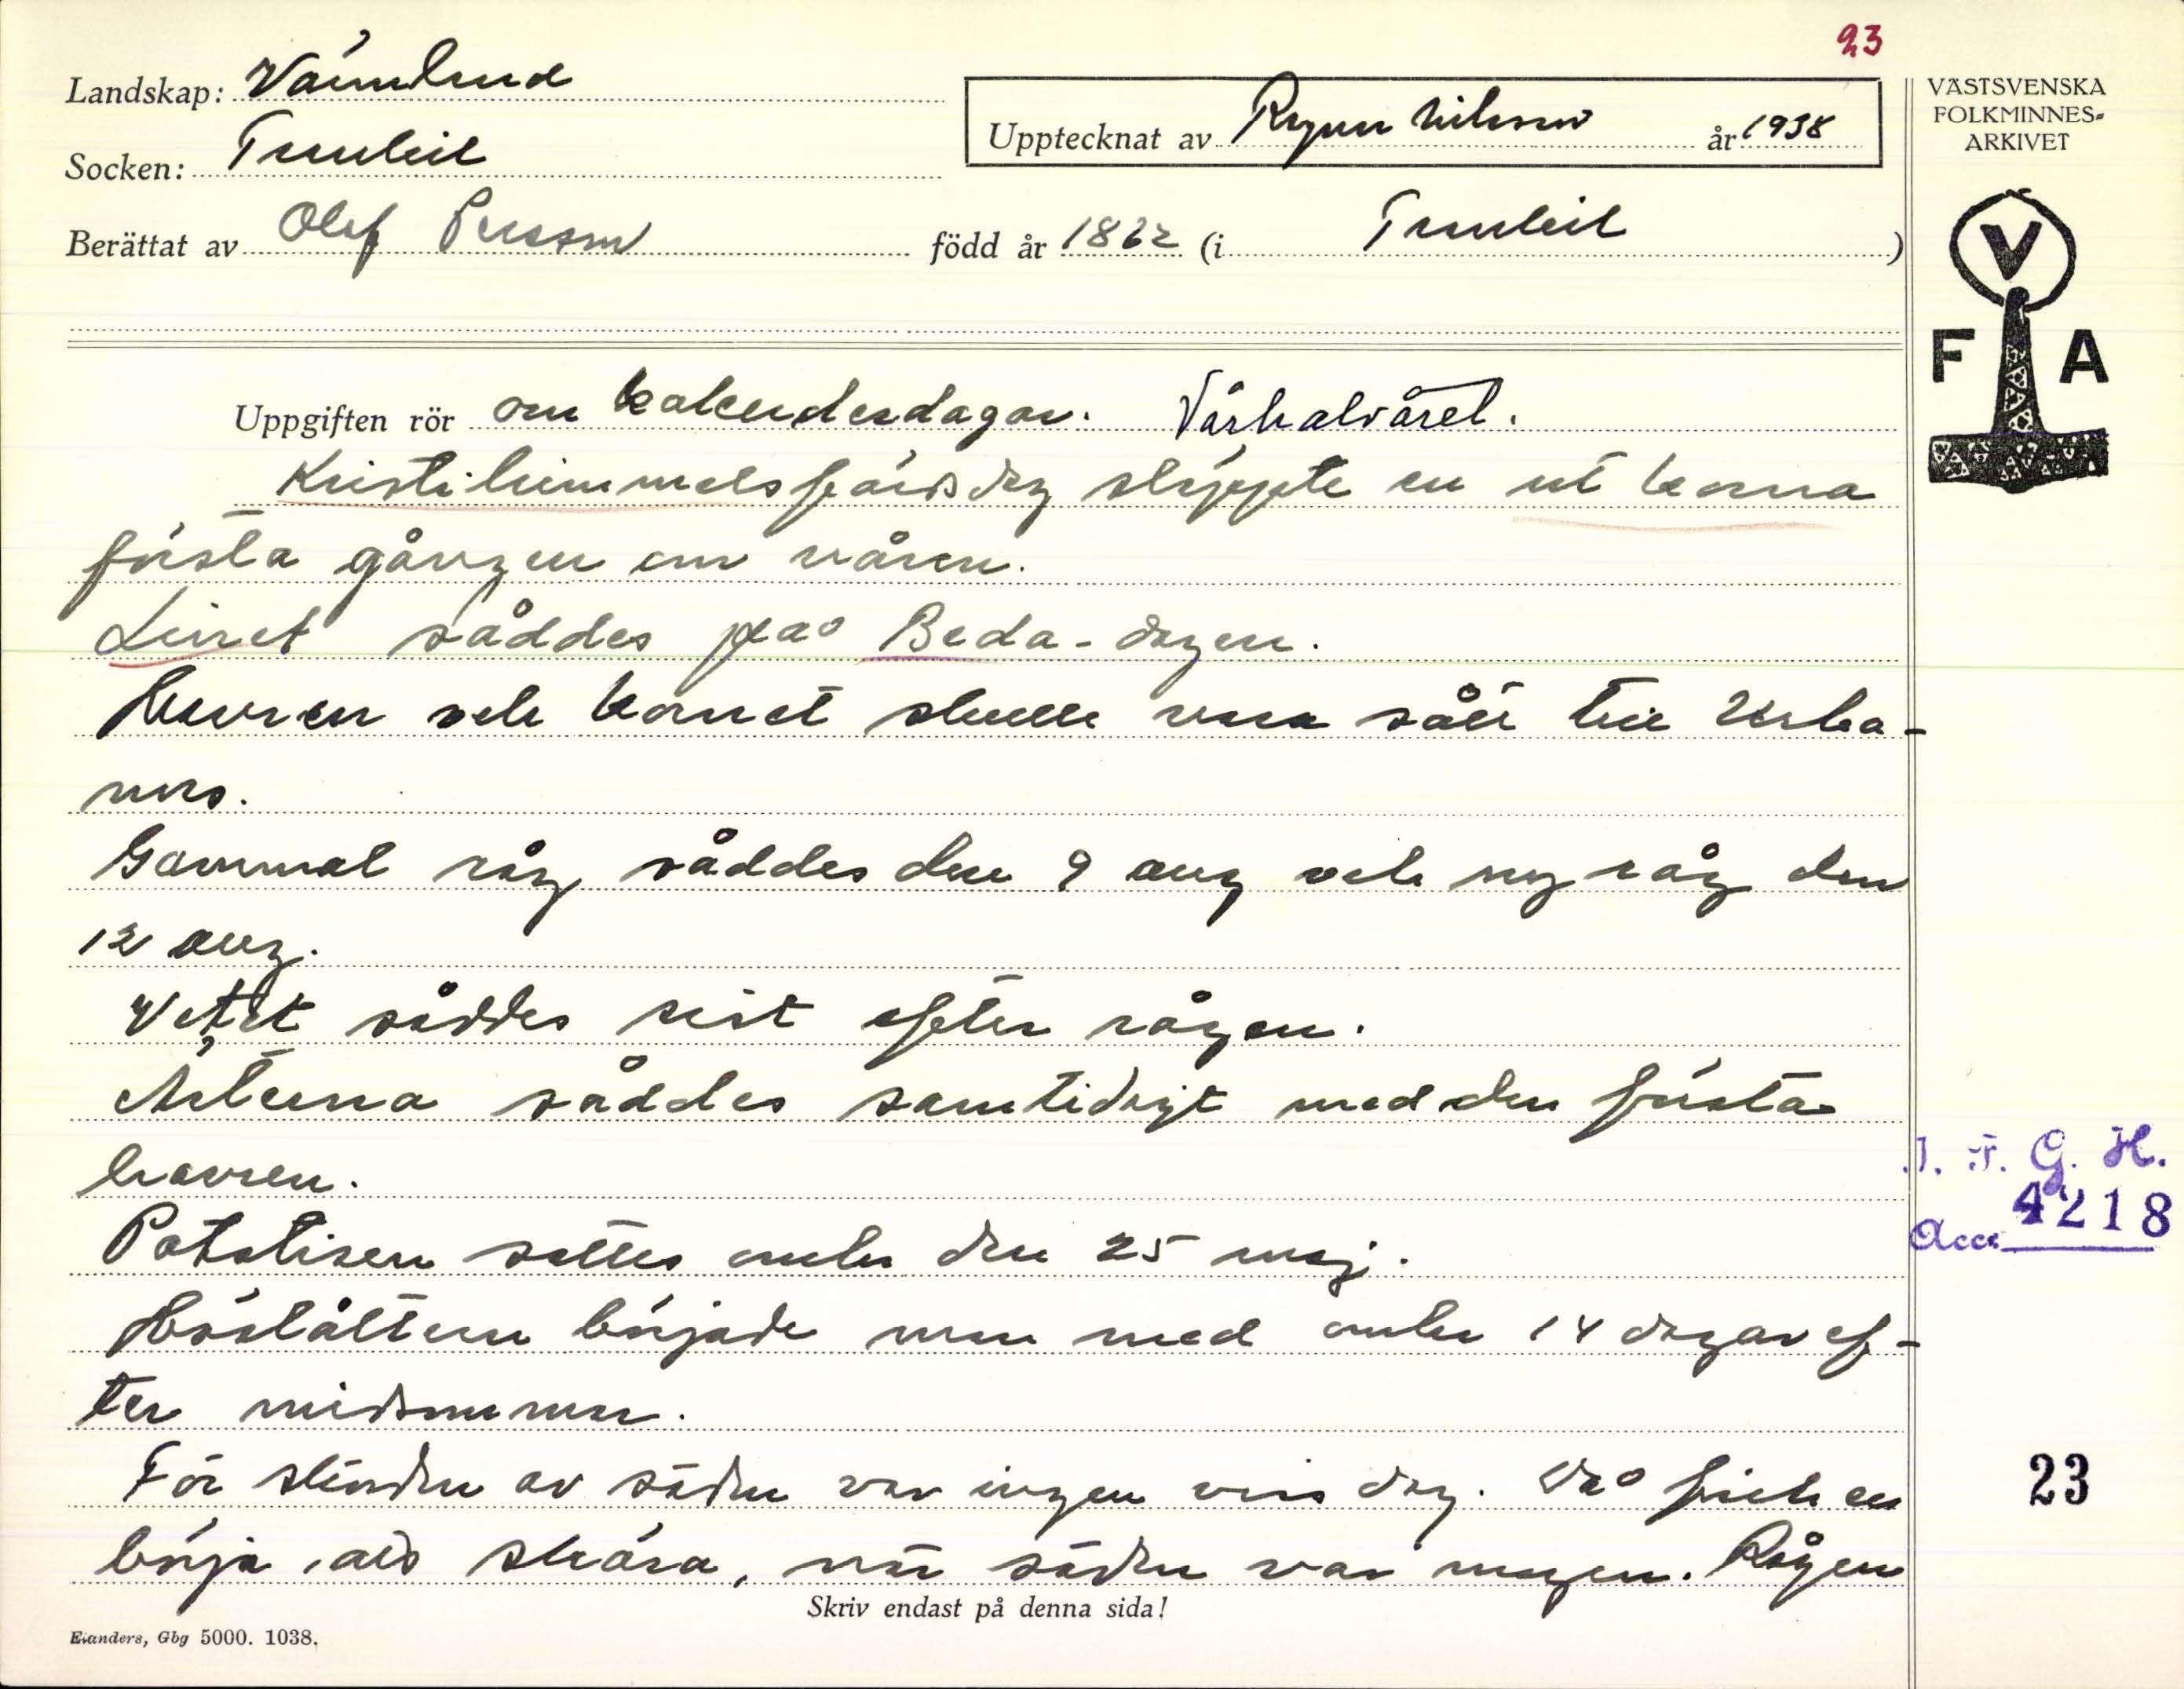 23
Landskap: Värmland
Socken: Trankil
Upptecknat av Ragnar Nilsson år 1938
Berättat av Olof Persson född år 1862 (i Trankil)
VÄSTSVENSKA
FOLKMINNES-
ARKIVET
V
F A
Uppgiften rör om kalenderdagar. Vårhalvåret.
Kristihimmelsfärdsdag släppte en ut korna
första gången om våren.
Linet såddes på Beda-dagen.
Havren och kornet skulle vara sått till Urba-
nus.
Gammal råg såddes den 9 aug och ny råg den
12 aug.
Vetet såddes sist efter rågen.
Ärterna såddes samtidigt med den första
havren.
Potatisen sattes omkr den 25 maj.
Höslåttern började man med omkr 14 dagar ef-
ter midsommar.
För skörden av säden var ingen viss dag. Då fick en
börja att skära, när säden var mogen. Rågen
I. F. G. H.
Acc. 4218
23
Skriv endast på denna sida!
Elanders, Gbg 5000. 1038.